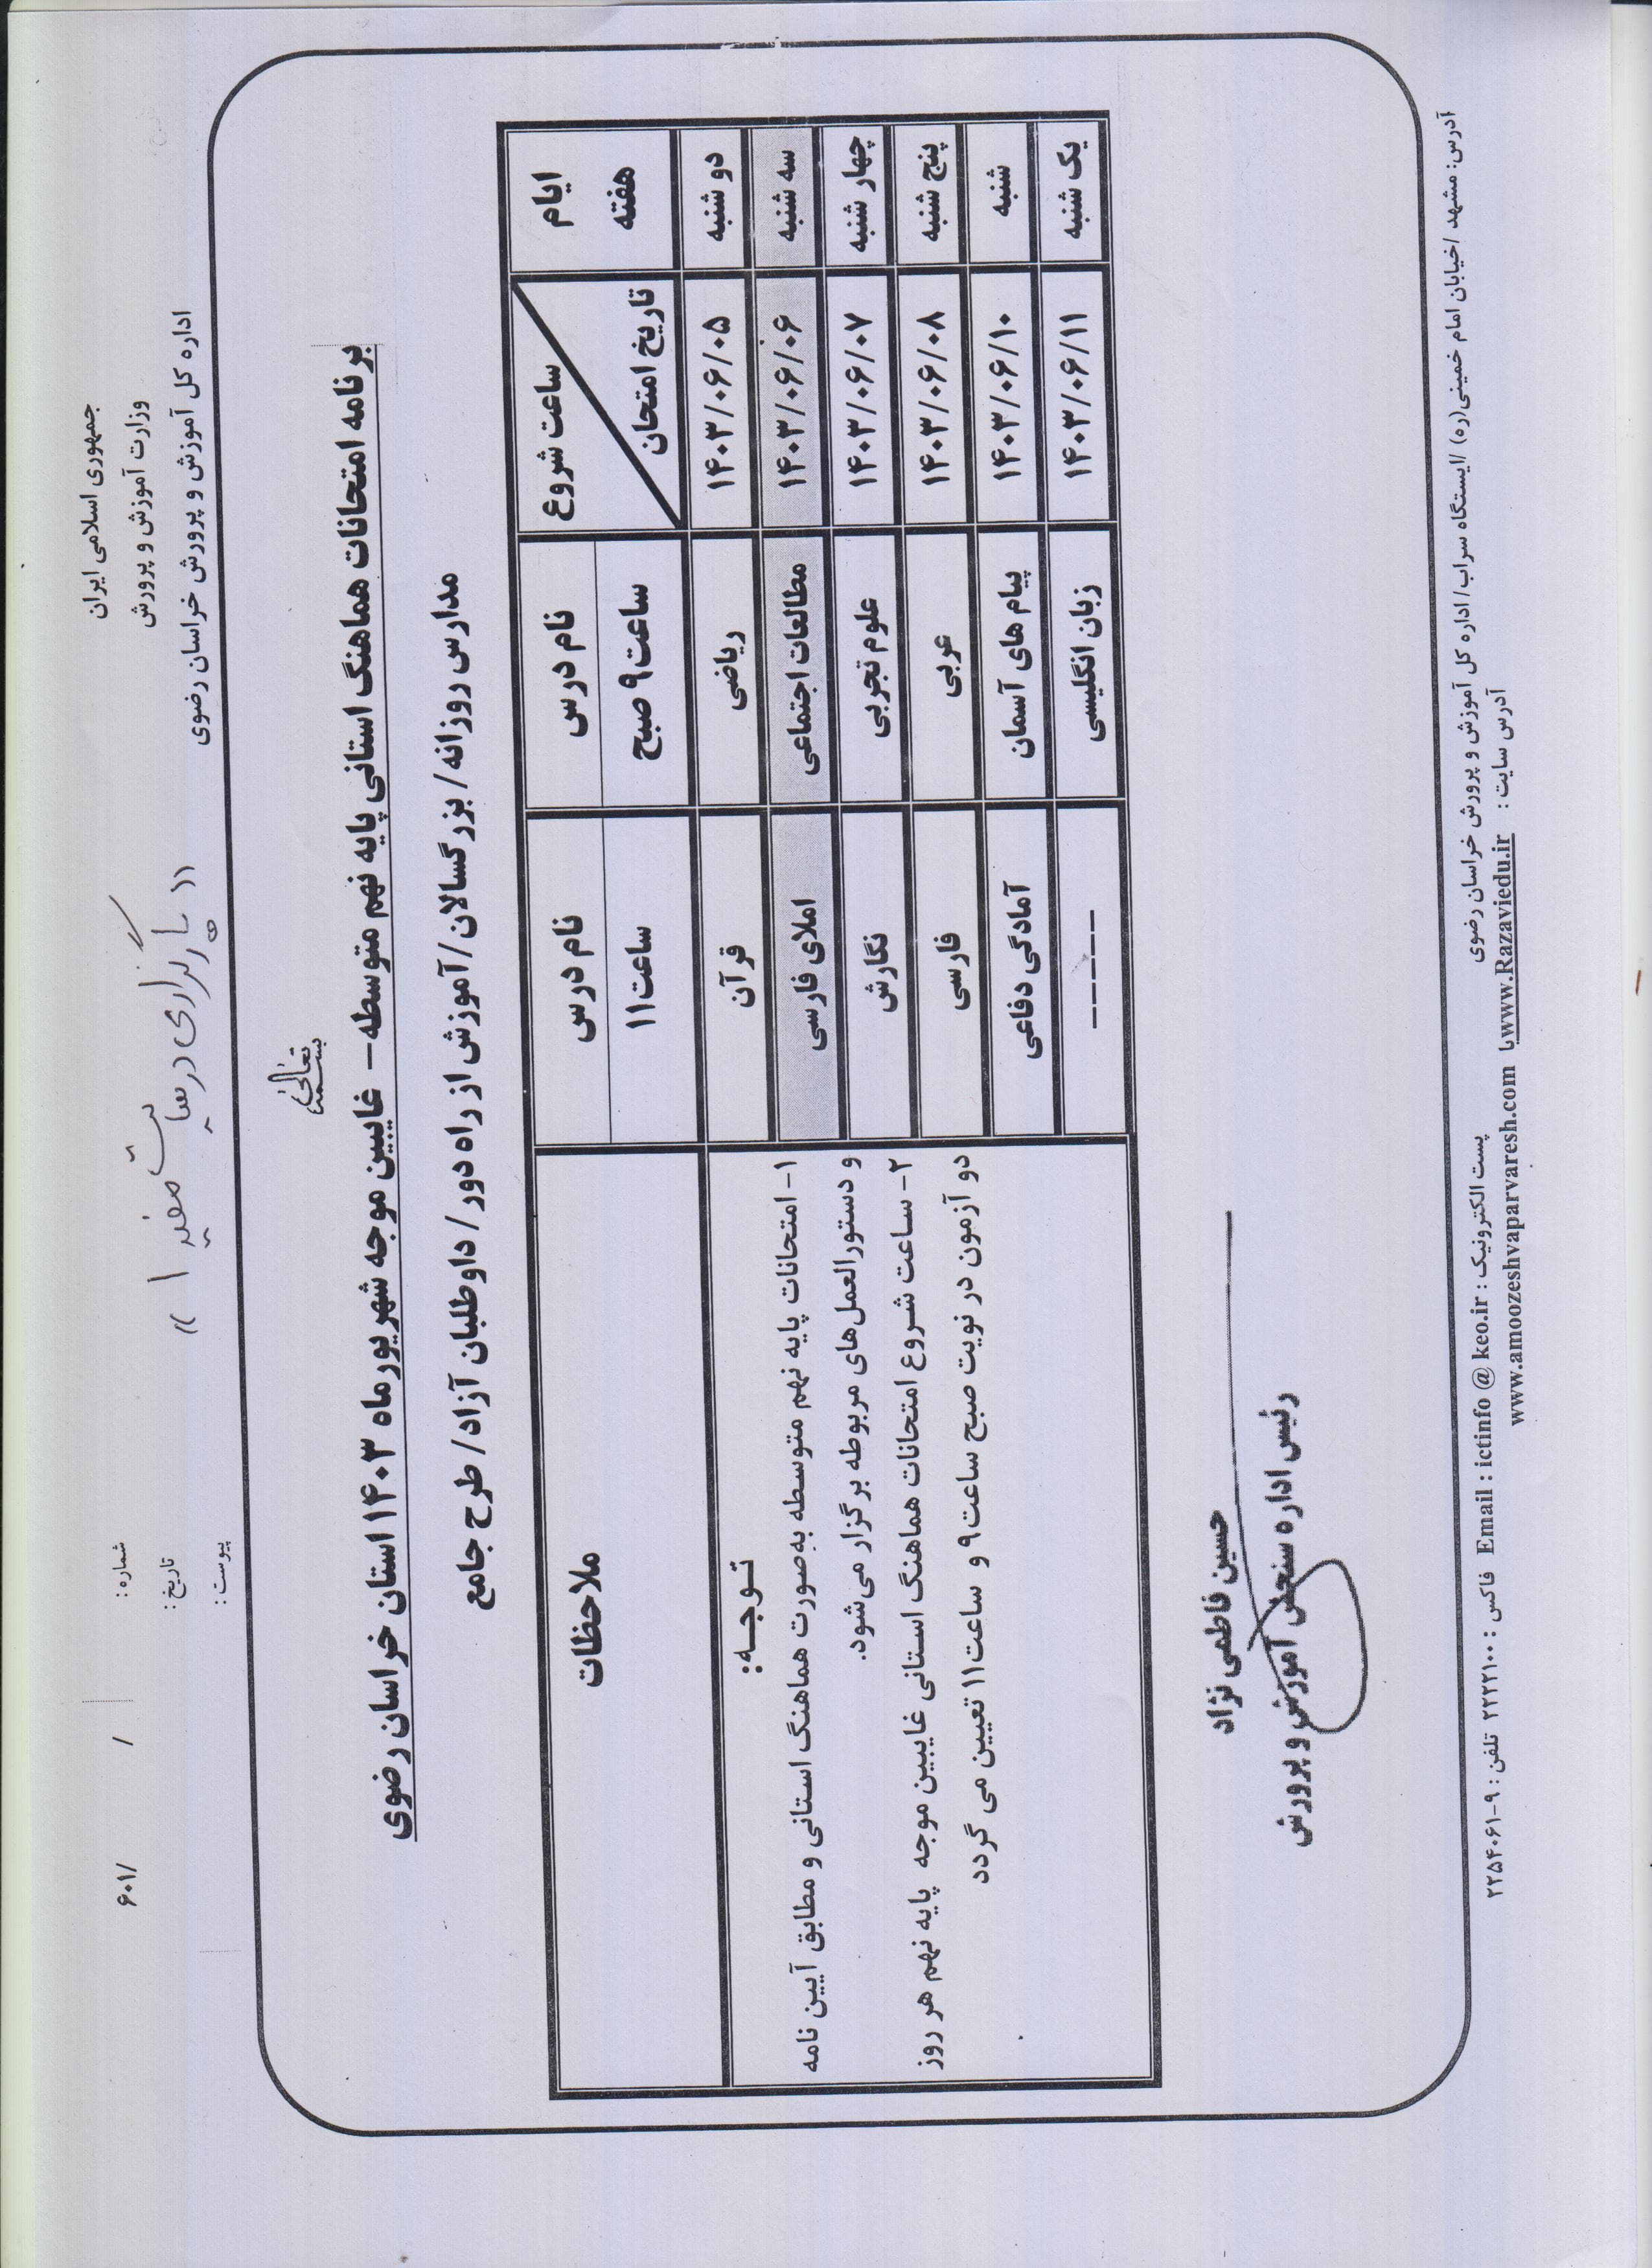 جمهوری اسلامی ایران
وزارت آموزش و پرورش
اداره کل آموزش و پرورش خراسان رضوی
« بارگزاری در سایت مفید ا »
شماره: / ۶۰۱/
تاریخ :
پیوست :
بسمه تعالی
برنامه امتحانات هماهنگ استانی پایه نهم متوسطه- غایبین موجه شهریورماه ۱۴۰۳ استان خراسان رضوی
مدارس روزانه/ بزرگسالان/آموزش از راه دور/ داوطلبان آزاد/ طرح جامع
ایام هفته ساعت شروع تاریخ امتحان نام درس ساعت۹ صبح نام درس ساعت۱۱ ملاحظات
دو شنبه ۱۴۰۳/۰۶/۰۵ ریاضی قرآن
سه شنبه ۱۴۰۳/۰۶/۰۶ مطالعات اجتماعی املای فارسی
چهار شنبه ۱۴۰۳/۰۶/۰۷ علوم تجربی نگارش
پنج شنبه ۱۴۰۳/۰۶/۰۸ عربی فارسی
شنبه ۱۴۰۳/۰۶/۱۰ پیام های آسمان آمادگی دفاعی
یک شنبه ۱۴۰۳/۰۶/۱۱ زبان انگلیسی -----
توجه:
۱- امتحانات پایه نهم متوسطه به‌صورت هماهنگ استانی و مطابق آیین نامه
و دستورالعمل‌های مربوطه برگزار می‌شود.
۲- ساعت شروع امتحانات هماهنگ استانی غایبین موجه پایه نهم هر روز
دو آزمون در نوبت صبح ساعت۹ و ساعت۱۱ تعیین می گردد
حسین فاطمی نژاد
رئیس اداره سنجش آموزش و پرورش
آدرس: مشهد /خیابان امام خمینی(ره) /ایستگاه سراب/ اداره کل آموزش و پرورش خراسان رضوی پست الکترونیک : Email : ictinfo @ keo.ir فاکس : ۲۲۲۲۱۰۰ تلفن : ۹-۲۲۵۴۰۶۱
آدرس سایت : www.Razaviedu.ir یا www.amoozeshvaparvaresh.com